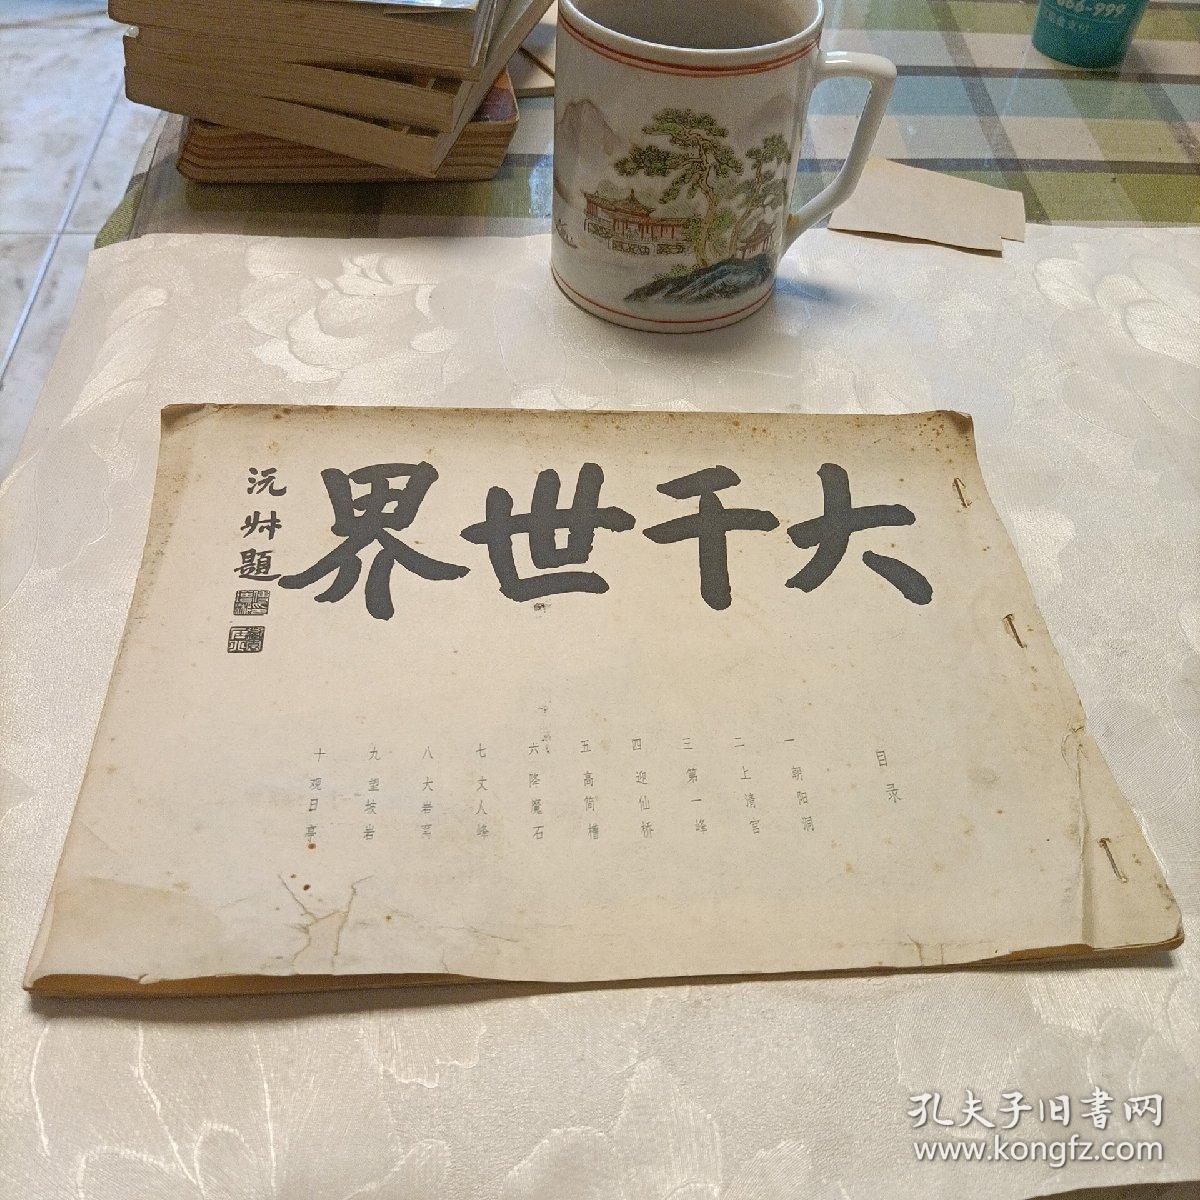 大千世界
沅叔題
目录
一 朝阳洞
二 上清宫
三 第一峰
四 迎仙桥
五 高简槽
六 降魔石
七 丈人峰
八 大岩窝
九 望坡岩
十 观日亭
666-999
孔夫子旧書网
www.kongfz.com